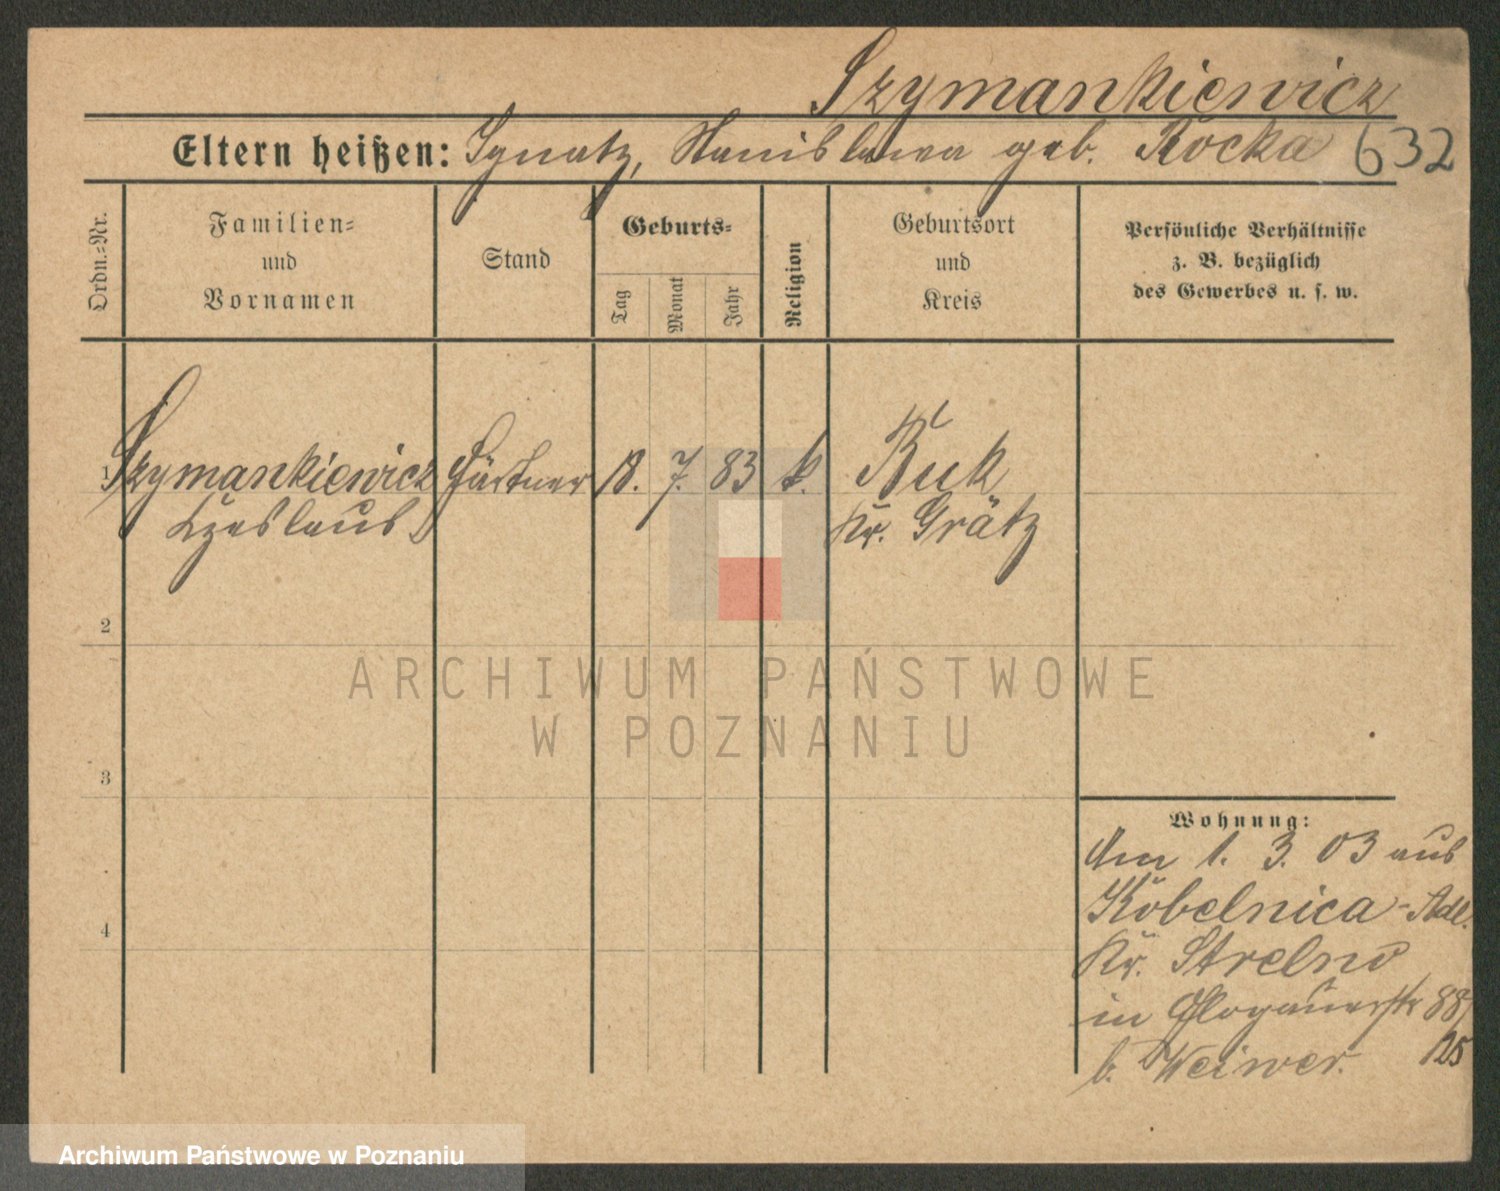 Szymankiewicz
Eltern heißen: Ignatz, Stanislawa geb. Kocka 632
Ordn.=Nr.
Familien=
und
Vornamen
Stand
Geburts=
Tag
Monat
Jahr
Religion
Geburtsort
und
Kreis
Persönliche Verhältnisse
z. B. bezüglich
des Gewerbes u. s. w.
1 Szymankiewicz Gärtner 18. 7. 83 k. Buk
Czeslaus Kr. Grätz
2
3
4
Wohnung:
Am 1. 3. 03 aus
Kobelnica - Adl.
Kr. Strelno
in Glogauerstr 88/
b. Weiwer. 125
ARCHIWUM PAŃSTWOWE
W POZNANIU
Archiwum Państwowe w Poznaniu